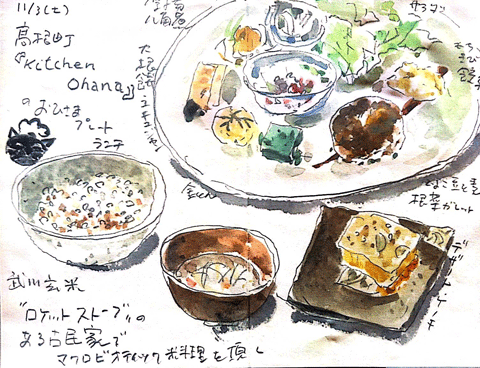 11/3(土)
高根町
『Kitchen
Ohana』
の おひさま
プレート
ランチ
サラダ
もち
きび
金とん
ひよこ豆と
根菜ガレット
デザートケーキ
武川玄米
"ロケットストーブ"の
ある古民家で
マクロビスティック料理を頂く